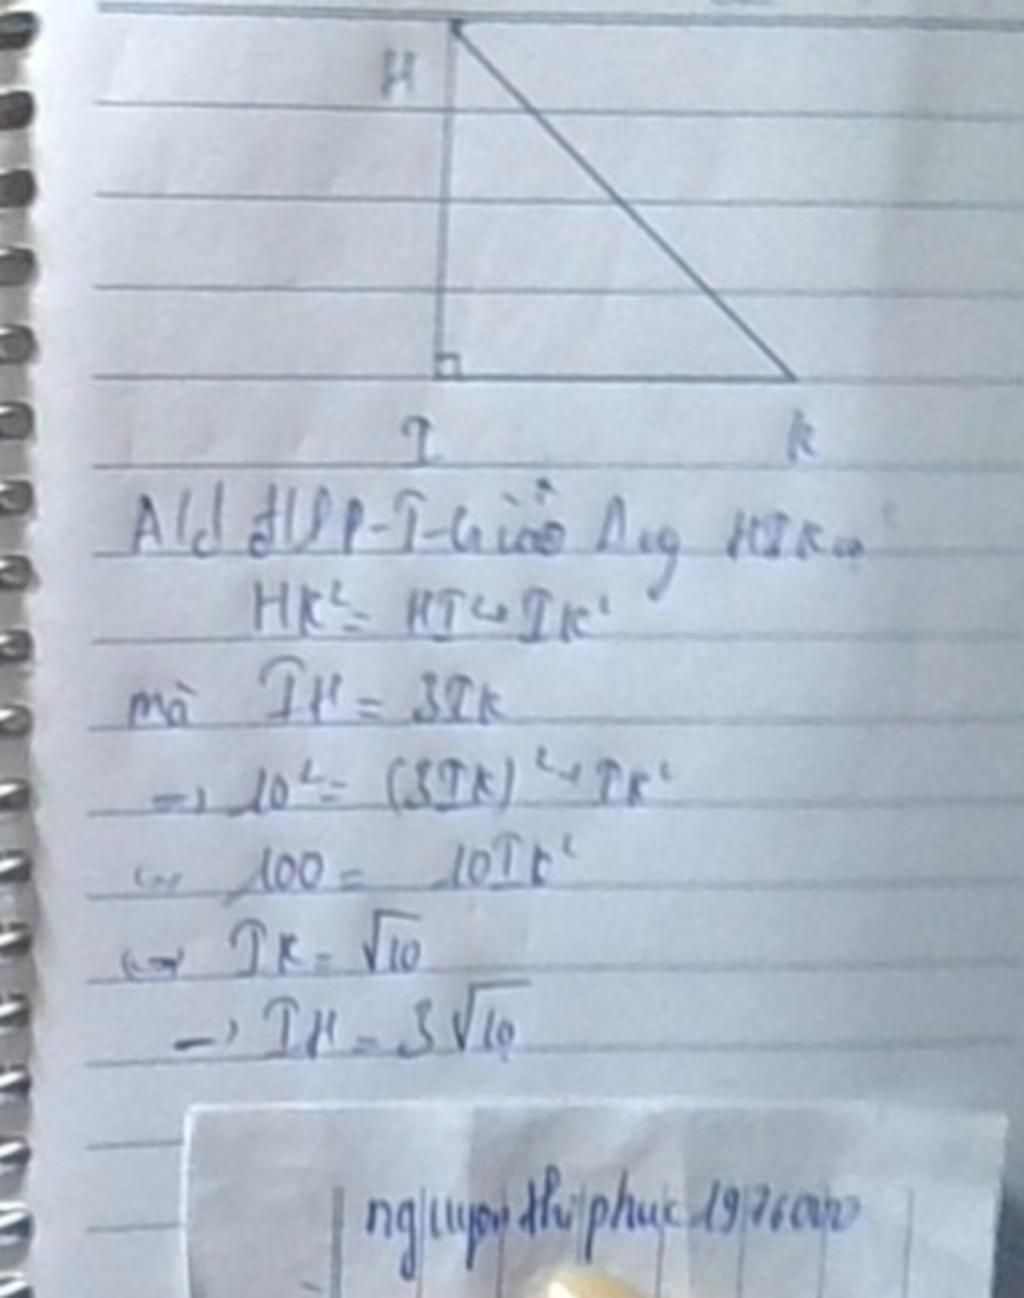 H
I K
Ald đlí P-T-Go Δvg HIK
HK² = HI² + IK²
mà IH = 3IK
=> 10² = (3IK)² + IK²
<=> 100 = 10IK²
<=> IK = √10
-> IH = 3√10
nguyen thi phuc 1976